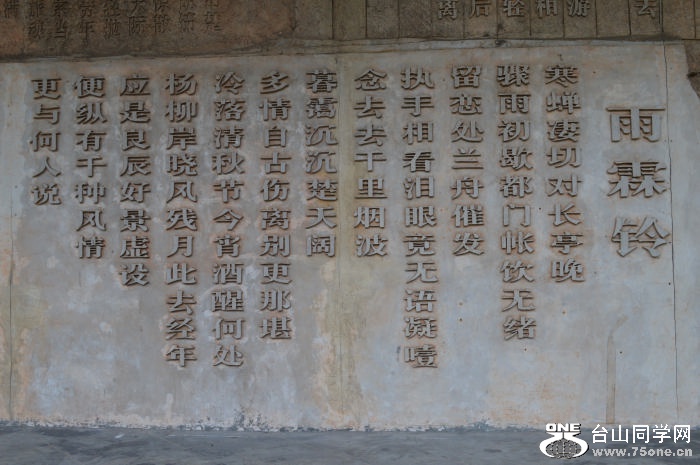 去
游
相
轻
后
离
雨霖铃
寒蝉凄切对长亭晚
骤雨初歇都门帐饮无绪
留恋处兰舟催发
执手相看泪眼竟无语凝噎
念去去千里烟波
暮霭沉沉楚天阔
多情自古伤离别更那堪
冷落清秋节今宵酒醒何处
杨柳岸晓风残月此去经年
应是良辰好景虚设
便纵有千种风情
更与何人说
ONE 台山同学网
www.75one.cn